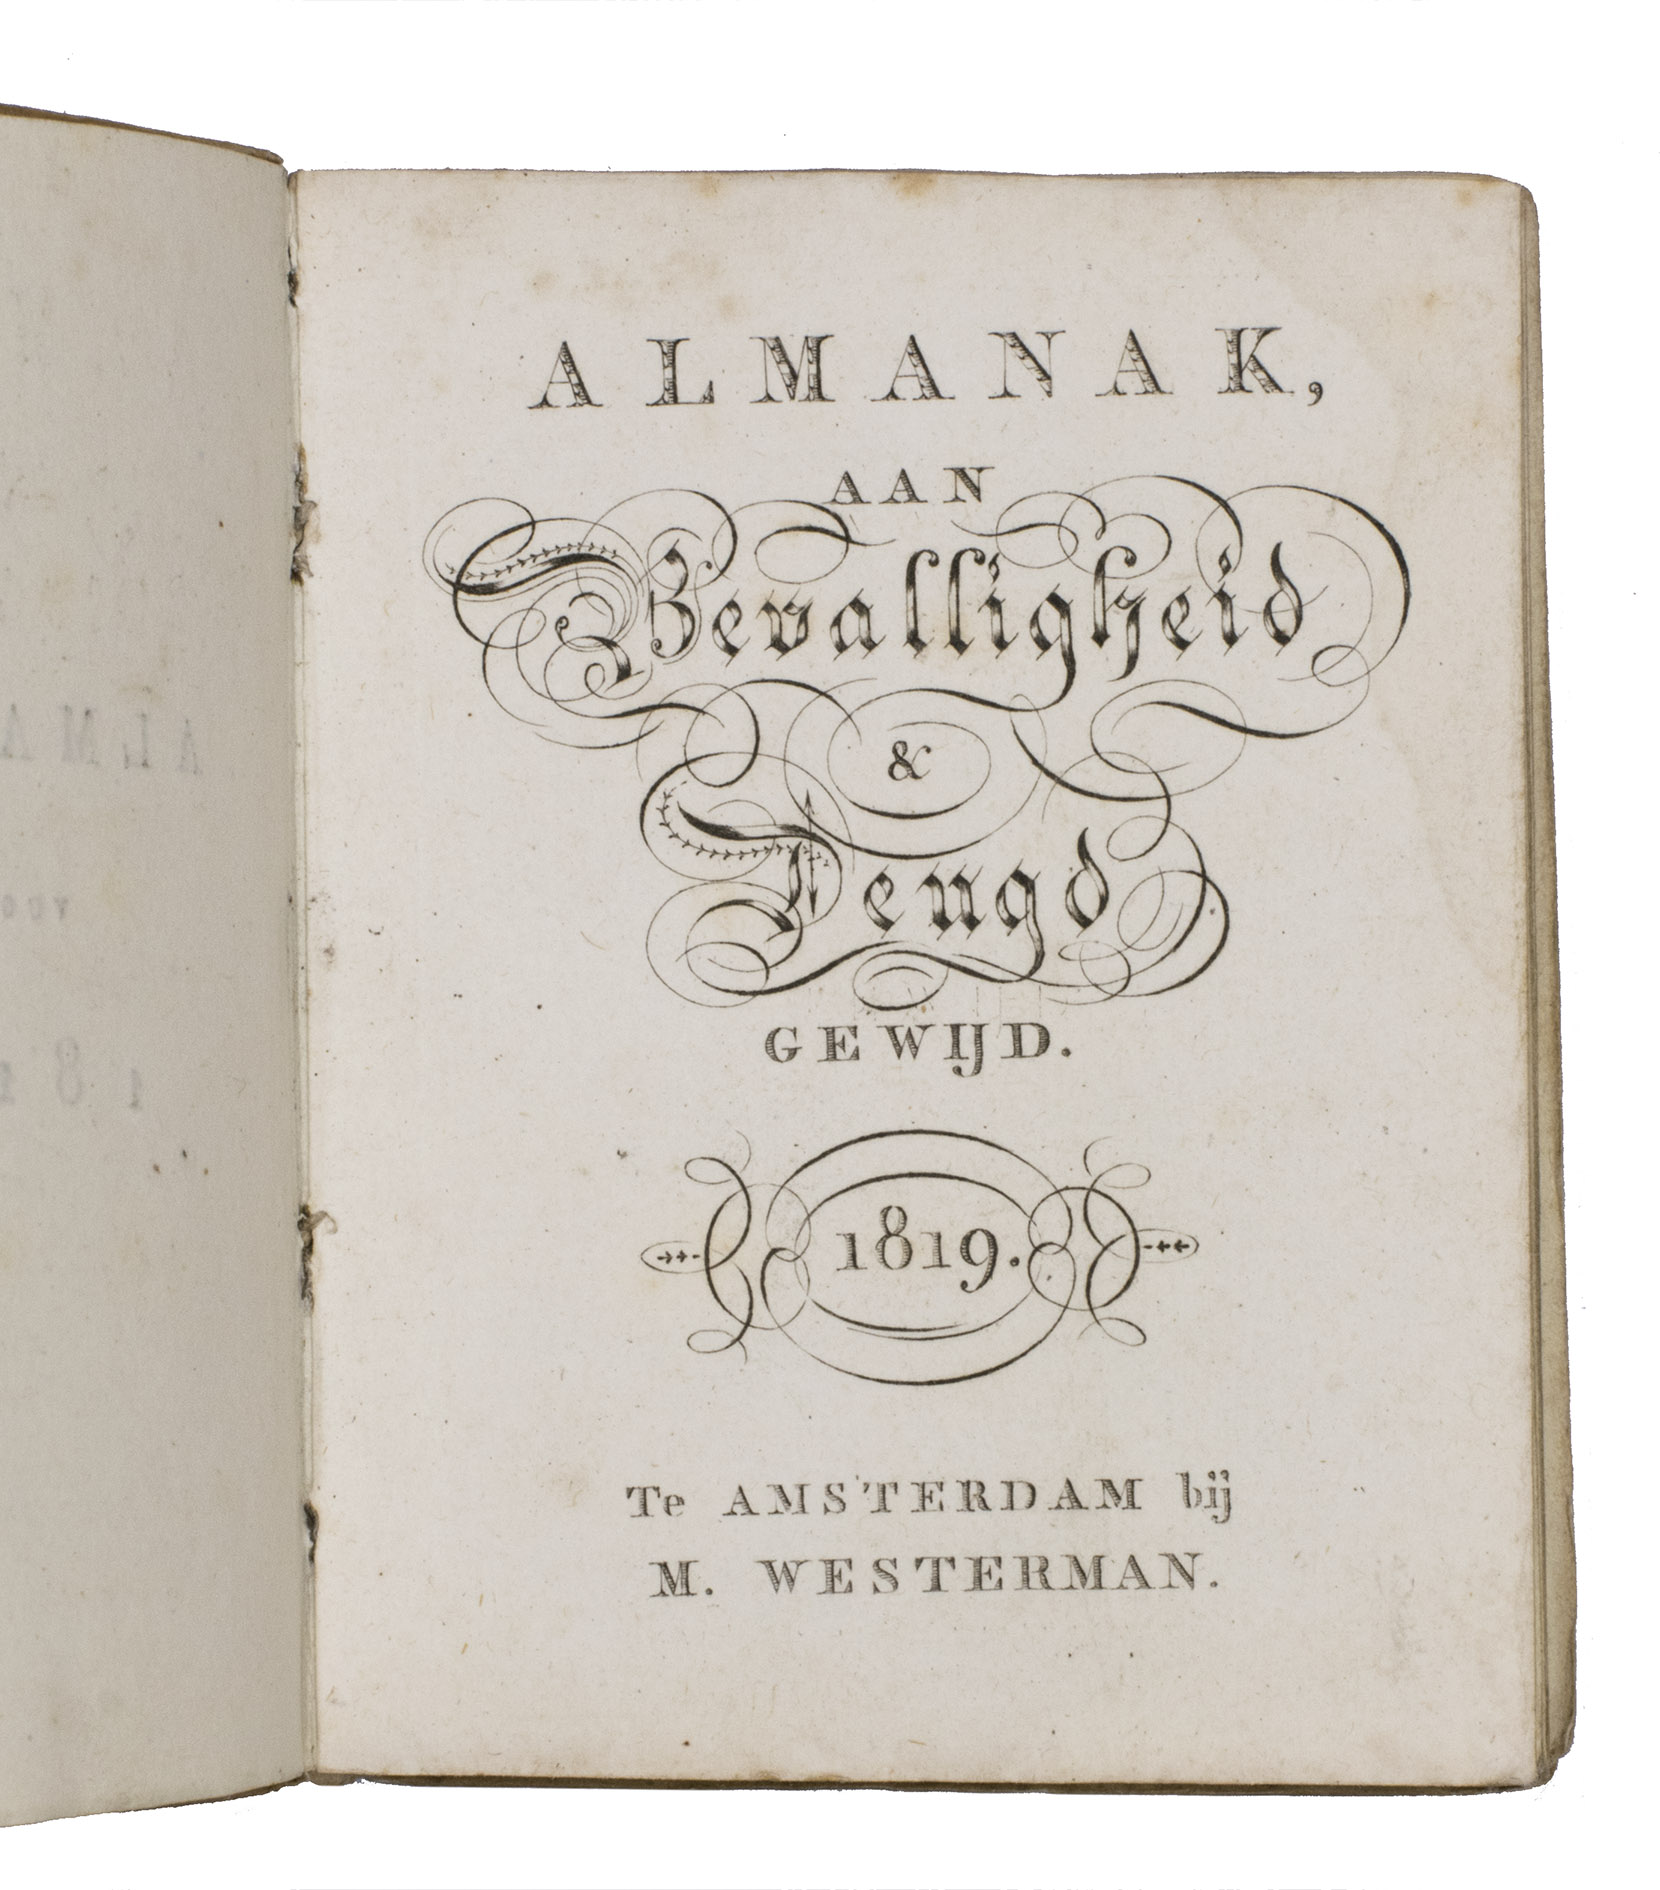 ALMANAK,
AAN
Bevalligheid
&
Jeugd
GEWIJD.
1819.
Te AMSTERDAM bij
M. WESTERMAN.